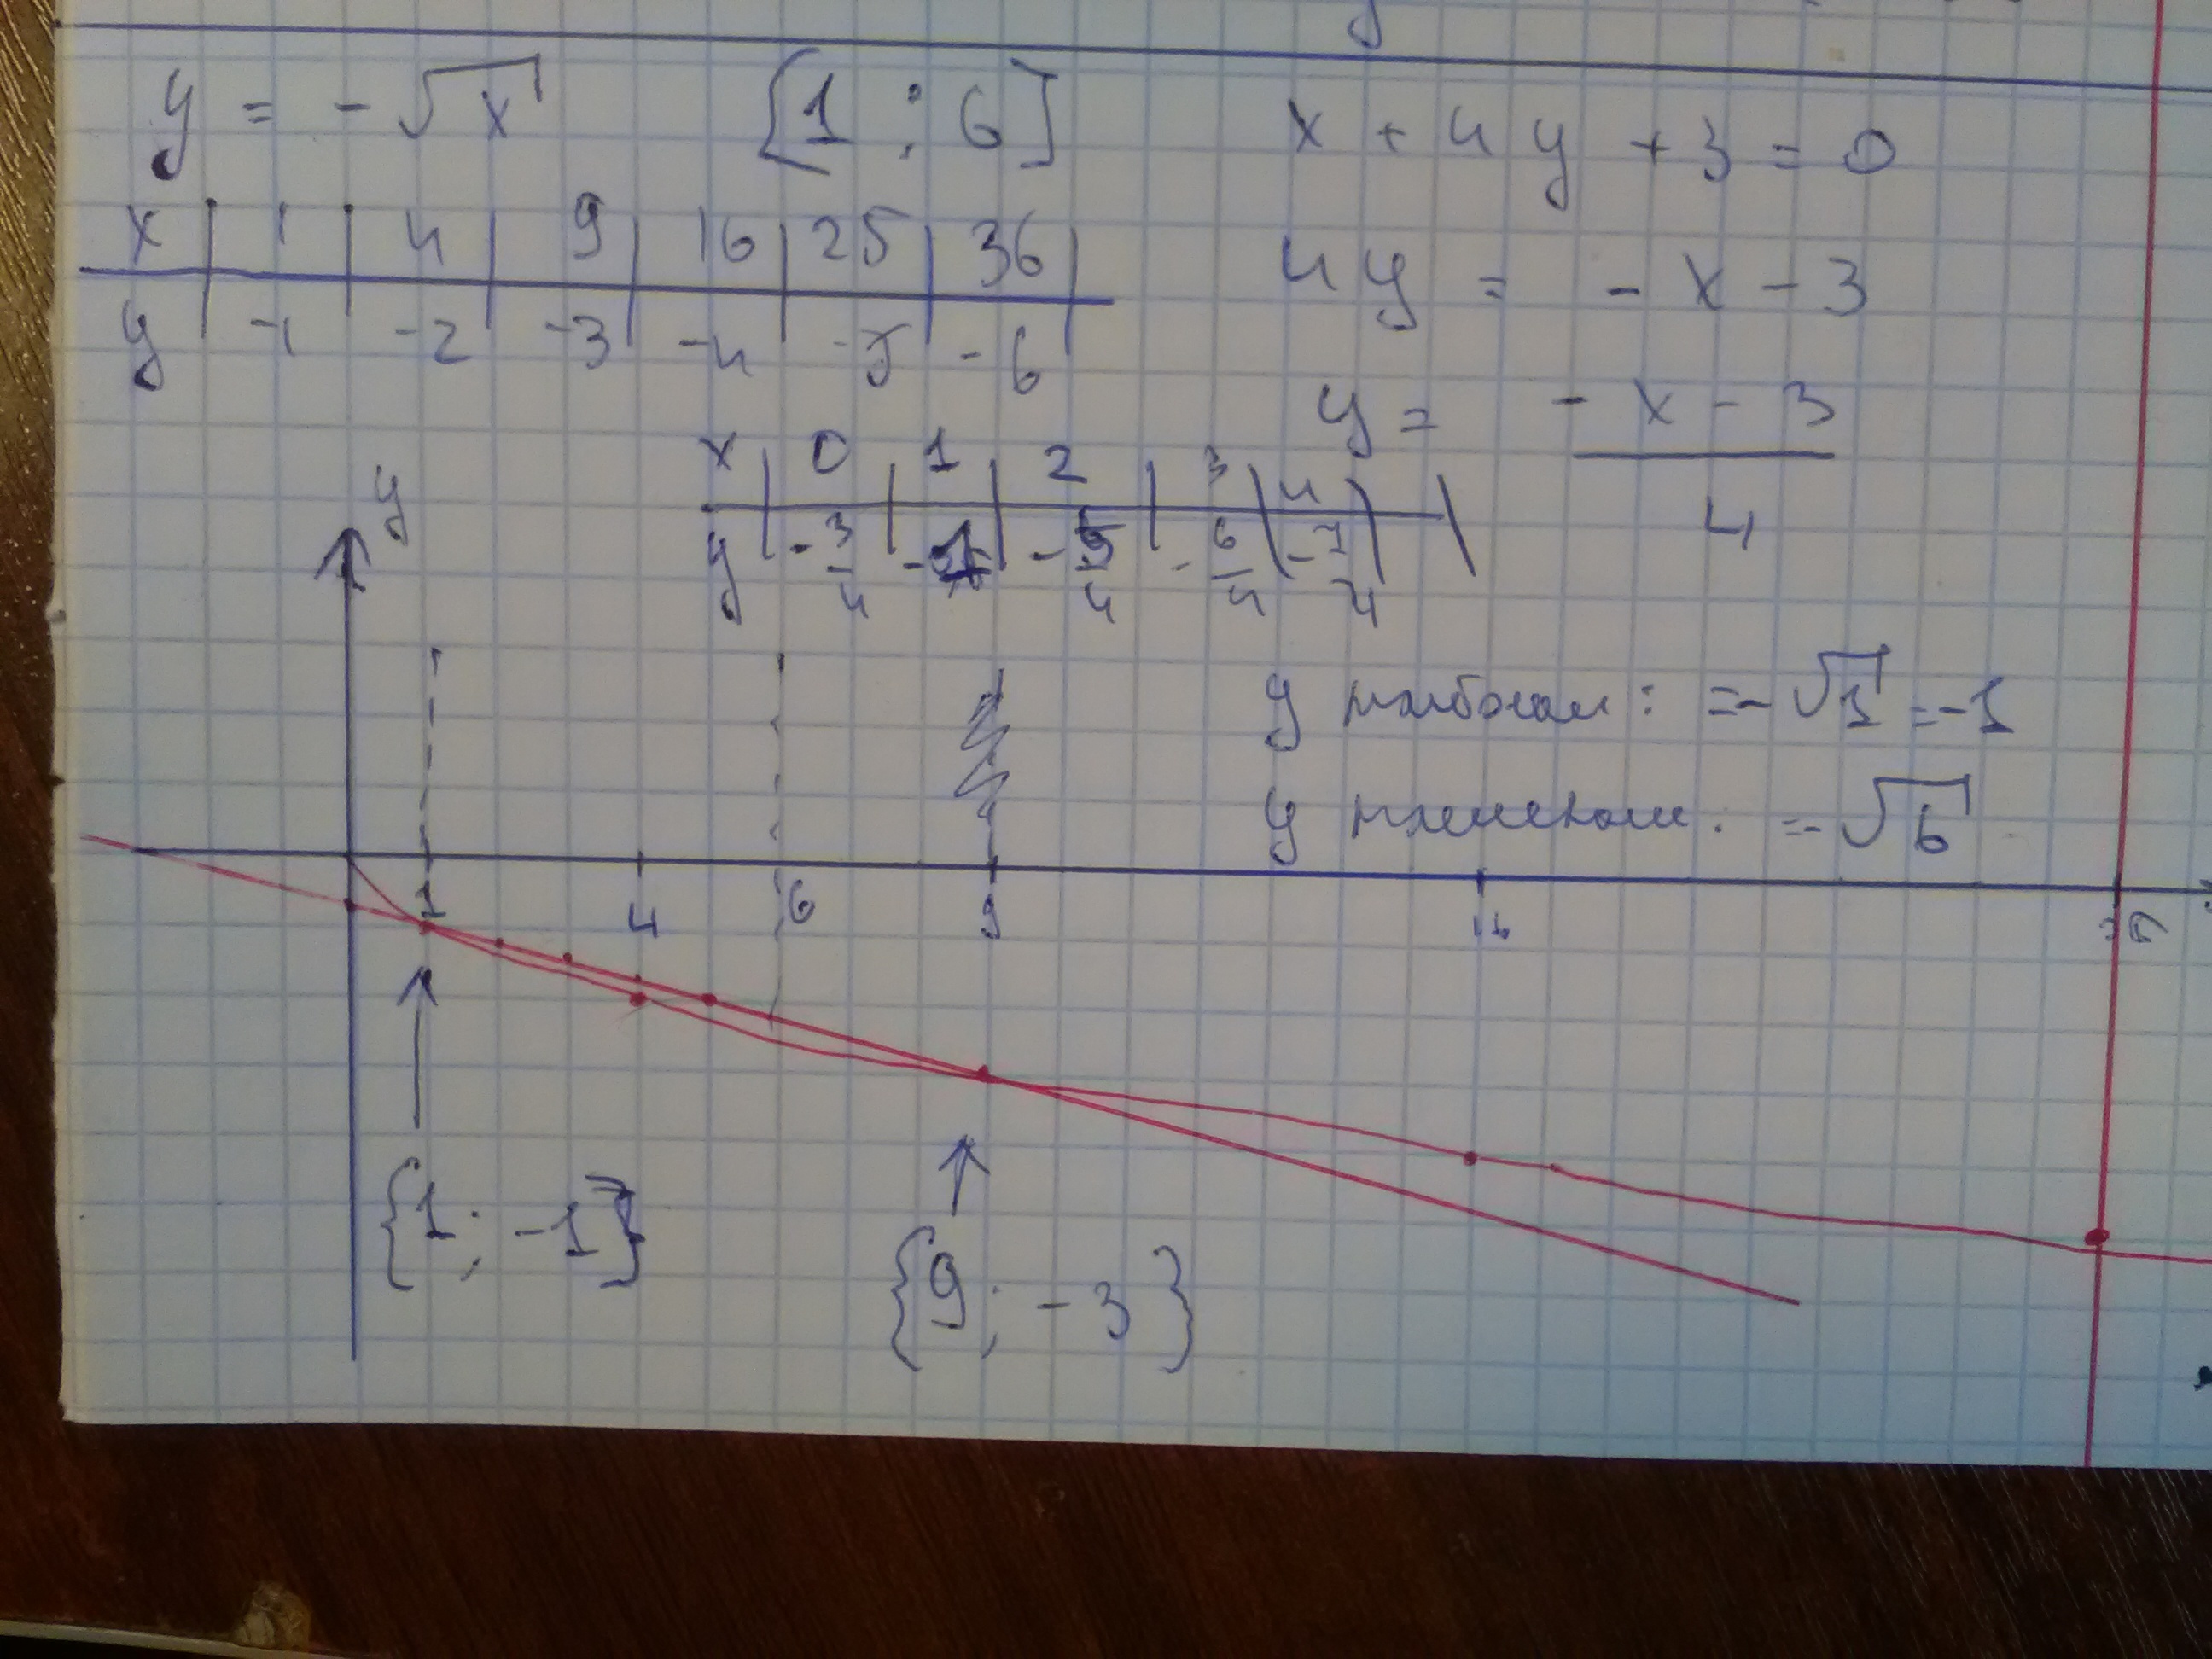 y = -√x [1 ; 6] x + 4y + 3 = 0
x | 1 | 4 | 9 | 16 | 25 | 36 |
y | -1 | -2 | -3 | -4 | -5 | -6
4y = -x - 3
y = (-x - 3)/4
x | 0 | 1 | 2 | 3 | 4 |
y | -3/4 | -1 | -5/4 | -6/4 | -7/4
y
y наибольш : = -√1 = -1
y наименьш. = -√6
1 4 6 9 16
{1; -1}
{9; -3}